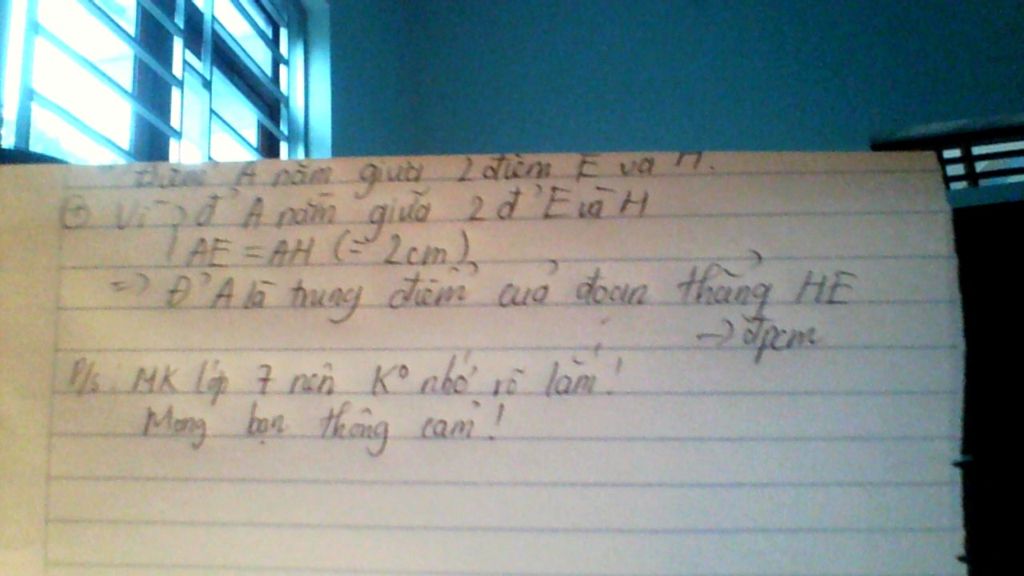 thẳm A nằm giữa 2 điểm E và H.
+ Vì { đ' A nằm giữa 2 đ' E và H
AE = AH (= 2cm)
=> Đ' A là trung điểm của đoạn thẳng HE
-> đpcm
P/s: MK lớp 7 nên K° nhớ rõ lắm!
Mong bạn thông cảm!